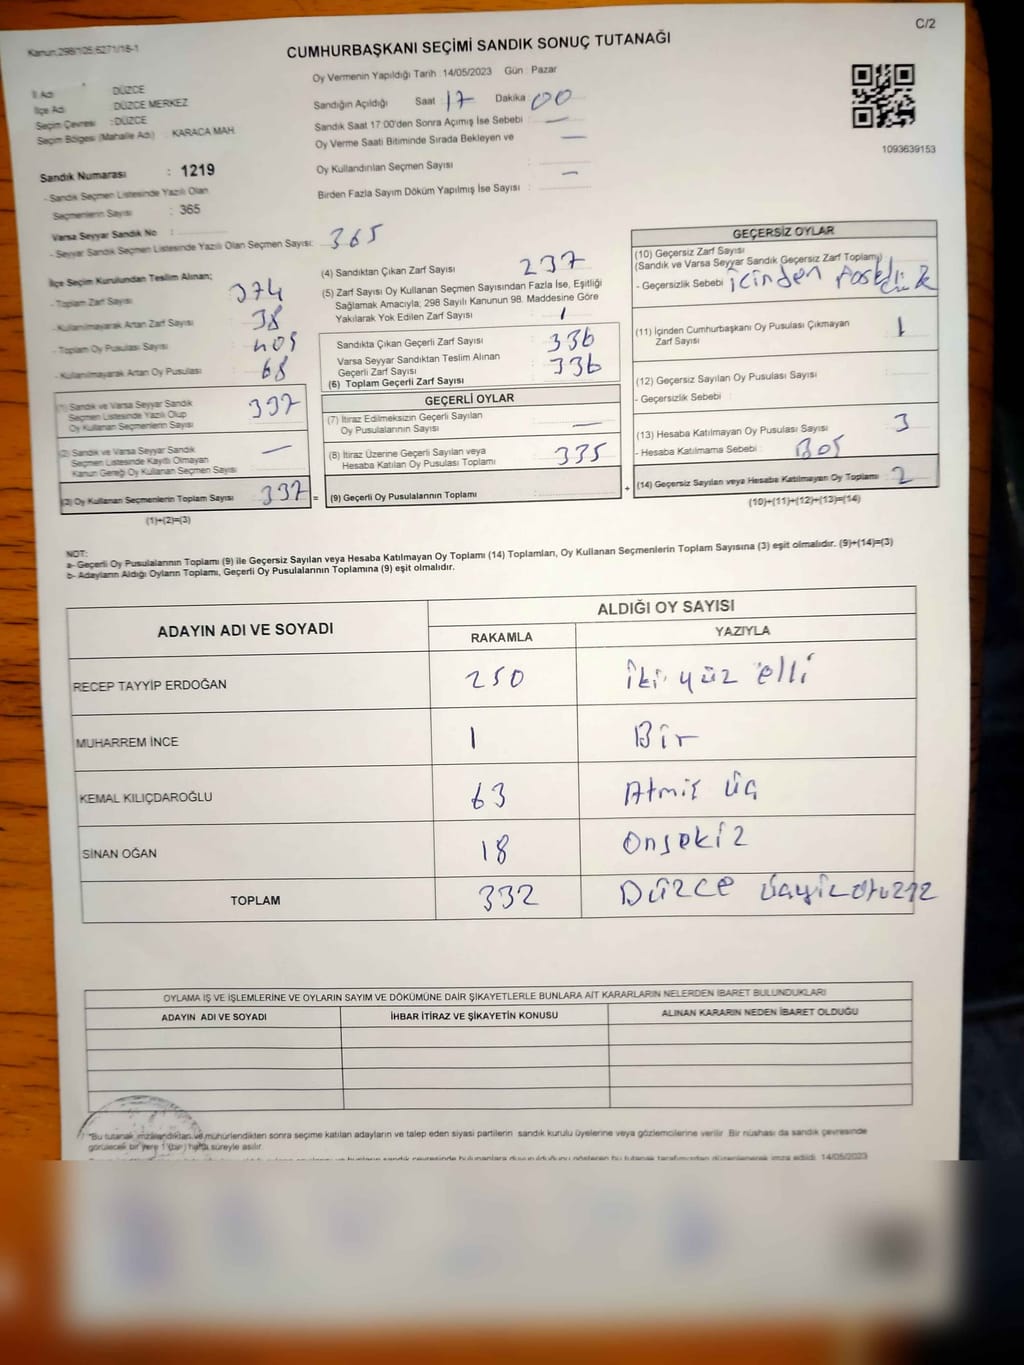 Kanun:298/105;6271/18-1
C/2
CUMHURBAŞKANI SEÇİMİ SANDIK SONUÇ TUTANAĞI
Oy Vermenin Yapıldığı Tarih : 14/05/2023 Gün : Pazar
İl Adı : DÜZCE
İlçe Adı : DÜZCE MERKEZ
Seçim Çevresi : DÜZCE
Seçim Bölgesi (Mahalle Adı) : KARACA MAH.
Sandığın Açıldığı Saat 17 Dakika 00
Sandık Saat 17:00'den Sonra Açımış İse Sebebi : —
Oy Verme Saati Bitiminde Sırada Bekleyen ve —
Oy Kullandırılan Seçmen Sayısı :
Birden Fazla Sayım Döküm Yapılmış İse Sayısı : —
1093639153
Sandık Numarası : 1219
- Sandık Seçmen Listesinde Yazılı Olan
Seçmenlerin Sayısı : 365
Varsa Seyyar Sandık No :
- Seyyar Sandık Seçmen Listesinde Yazılı Olan Seçmen Sayısı: 365
İlçe Seçim Kurulundan Teslim Alınan;
- Toplam Zarf Sayısı : 374
- Kullanılmayarak Artan Zarf Sayısı : 38
- Toplam Oy Pusulası Sayısı : 405
- Kullanılmayarak Artan Oy Pusulası : 68
(1) Sandık ve Varsa Seyyar Sandık
Seçmen Listesinde Yazılı Olup
Oy Kullanan Seçmenlerin Sayısı : 337
(2) Sandık ve Varsa Seyyar Sandık
Seçmen Listesinde Kayıtlı Olmayan
Kanun Gereği Oy Kullanan Seçmen Sayısı : —
(3) Oy Kullanan Seçmenlerin Toplam Sayısı : 337
(1)+(2)=(3)
(4) Sandıktan Çıkan Zarf Sayısı : 237
(5) Zarf Sayısı Oy Kullanan Seçmen Sayısından Fazla İse, Eşitliği
Sağlamak Amacıyla, 298 Sayılı Kanunun 98. Maddesine Göre
Yakılarak Yok Edilen Zarf Sayısı : 1
Sandıkta Çıkan Geçerli Zarf Sayısı : 336
Varsa Seyyar Sandıktan Teslim Alınan
Geçerli Zarf Sayısı : 336
(6) Toplam Geçerli Zarf Sayısı :
GEÇERLİ OYLAR
(7) İtiraz Edilmeksizin Geçerli Sayılan
Oy Pusulalarının Sayısı : —
(8) İtiraz Üzerine Geçerli Sayılan veya
Hesaba Katılan Oy Pusulası Toplamı : 335
= (9) Geçerli Oy Pusulalarının Toplamı :
+
GEÇERSİZ OYLAR
(10) Geçersiz Zarf Sayısı
(Sandık ve Varsa Seyyar Sandık Geçersiz Zarf Toplamı)
- Geçersizlik Sebebi : içinden
(11) İçinden Cumhurbaşkanı Oy Pusulası Çıkmayan
Zarf Sayısı : 1
(12) Geçersiz Sayılan Oy Pusulası Sayısı :
- Geçersizlik Sebebi :
(13) Hesaba Katılmayan Oy Pusulası Sayısı : 3
- Hesaba Katılmama Sebebi : Boş
(14) Geçersiz Sayılan veya Hesaba Katılmayan Oy Toplamı : 2
(10)+(11)+(12)+(13)=(14)
NOT:
a- Geçerli Oy Pusulalarının Toplamı (9) ile Geçersiz Sayılan veya Hesaba Katılmayan Oy Toplamı (14) Toplamları, Oy Kullanan Seçmenlerin Toplam Sayısına (3) eşit olmalıdır. (9)+(14)=(3)
b- Adayların Aldığı Oyların Toplamı, Geçerli Oy Pusulalarının Toplamına (9) eşit olmalıdır.
ADAYIN ADI VE SOYADI
ALDIĞI OY SAYISI
RAKAMLA YAZIYLA
RECEP TAYYİP ERDOĞAN 250 iki yüz elli
MUHARREM İNCE 1 Bir
KEMAL KILIÇDAROĞLU 63 Atmış üç
SİNAN OĞAN 18 Onsekiz
TOPLAM 332 Düzce
OYLAMA İŞ VE İŞLEMLERİNE VE OYLARIN SAYIM VE DÖKÜMÜNE DAİR ŞİKAYETLERLE BUNLARA AİT KARARLARIN NELERDEN İBARET BULUNDUKLARI
ADAYIN ADI VE SOYADI İHBAR İTİRAZ VE ŞİKAYETİN KONUSU ALINAN KARARIN NEDEN İBARET OLDUĞU
"Bu tutanak imzalandıktan ve mühürlendikten sonra seçime katılan adayların ve talep eden siyasi partilerin sandık kurulu üyelerine veya gözlemcilerine verilir. Bir nüshası da sandık çevresinde
görülecek bir yere 1 (bir) hafta süreyle asılır.
14/05/2023